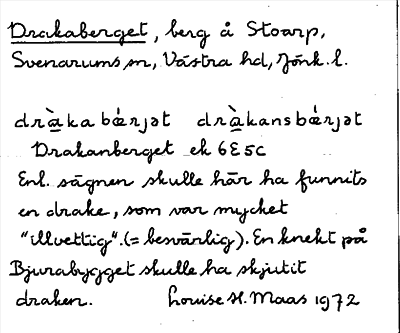 Drakaberget, berg å Stoarp,
Svenarums sn, Västra hd, Jönk. l.
dràka bǽrjət dràkansbǽrjət
Drakanberget ek 6E5c
Enl. sägnen skulle här ha funnits
en drake, som var mycket
"illvettig". (= besvärlig). En knekt på
Bjurabygget skulle ha skjutit
draken. Louise H. Maas 1972